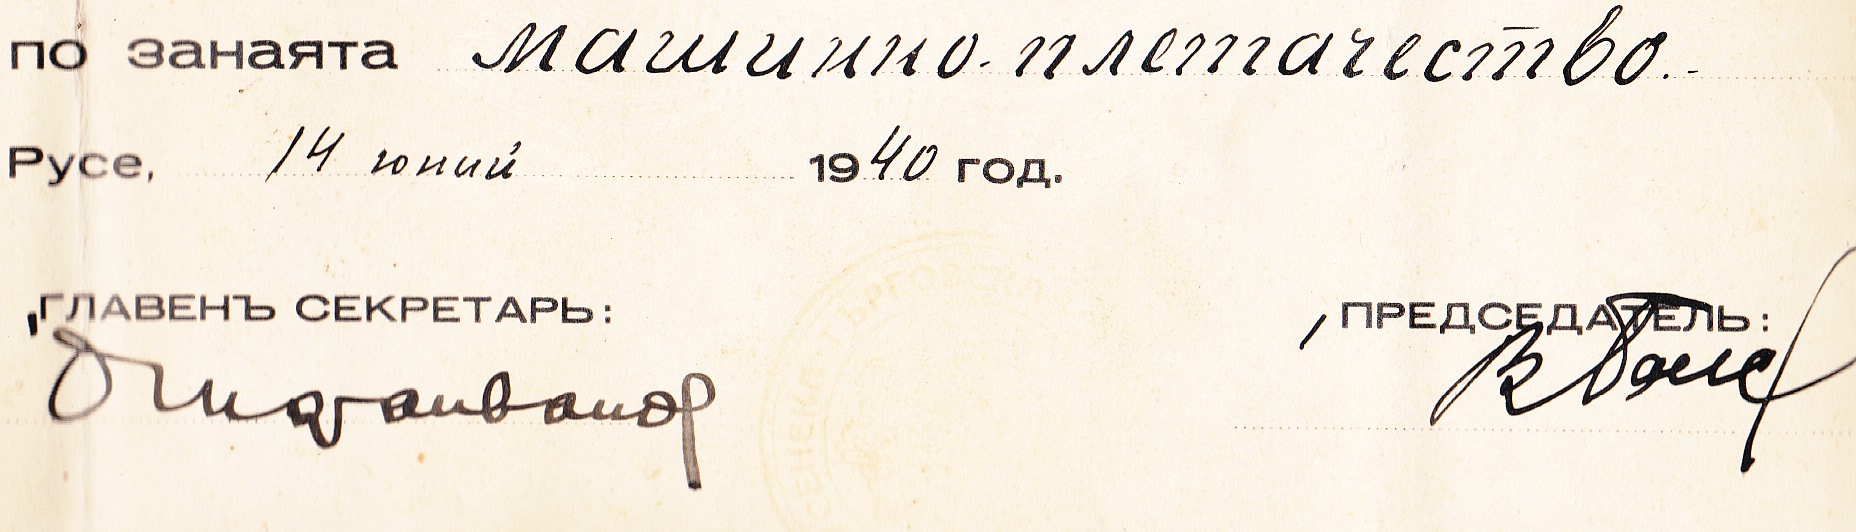 по занаята машинно-плетачество.-
Русе, 14 юний 1940 год.
ГЛАВЕНЪ СЕКРЕТАРЬ: ПРЕДСЕДАТЕЛЬ: